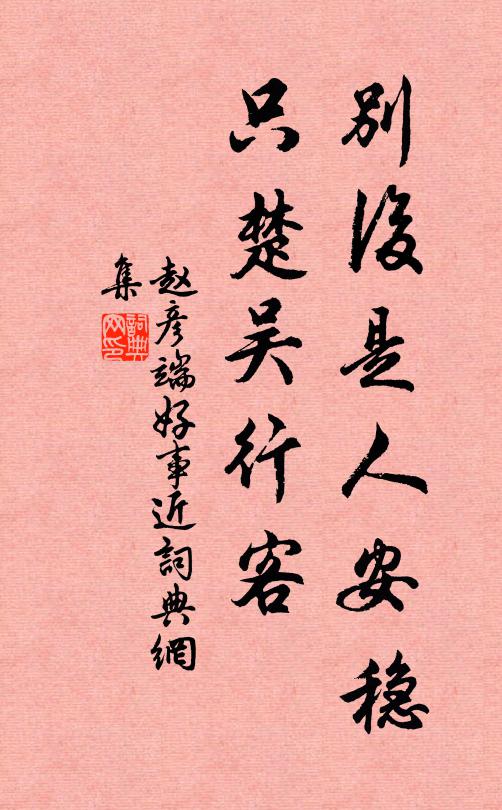 別後是人安穏
只楚吴行客
赵彦端好事近詞典網
集
詞典
网印